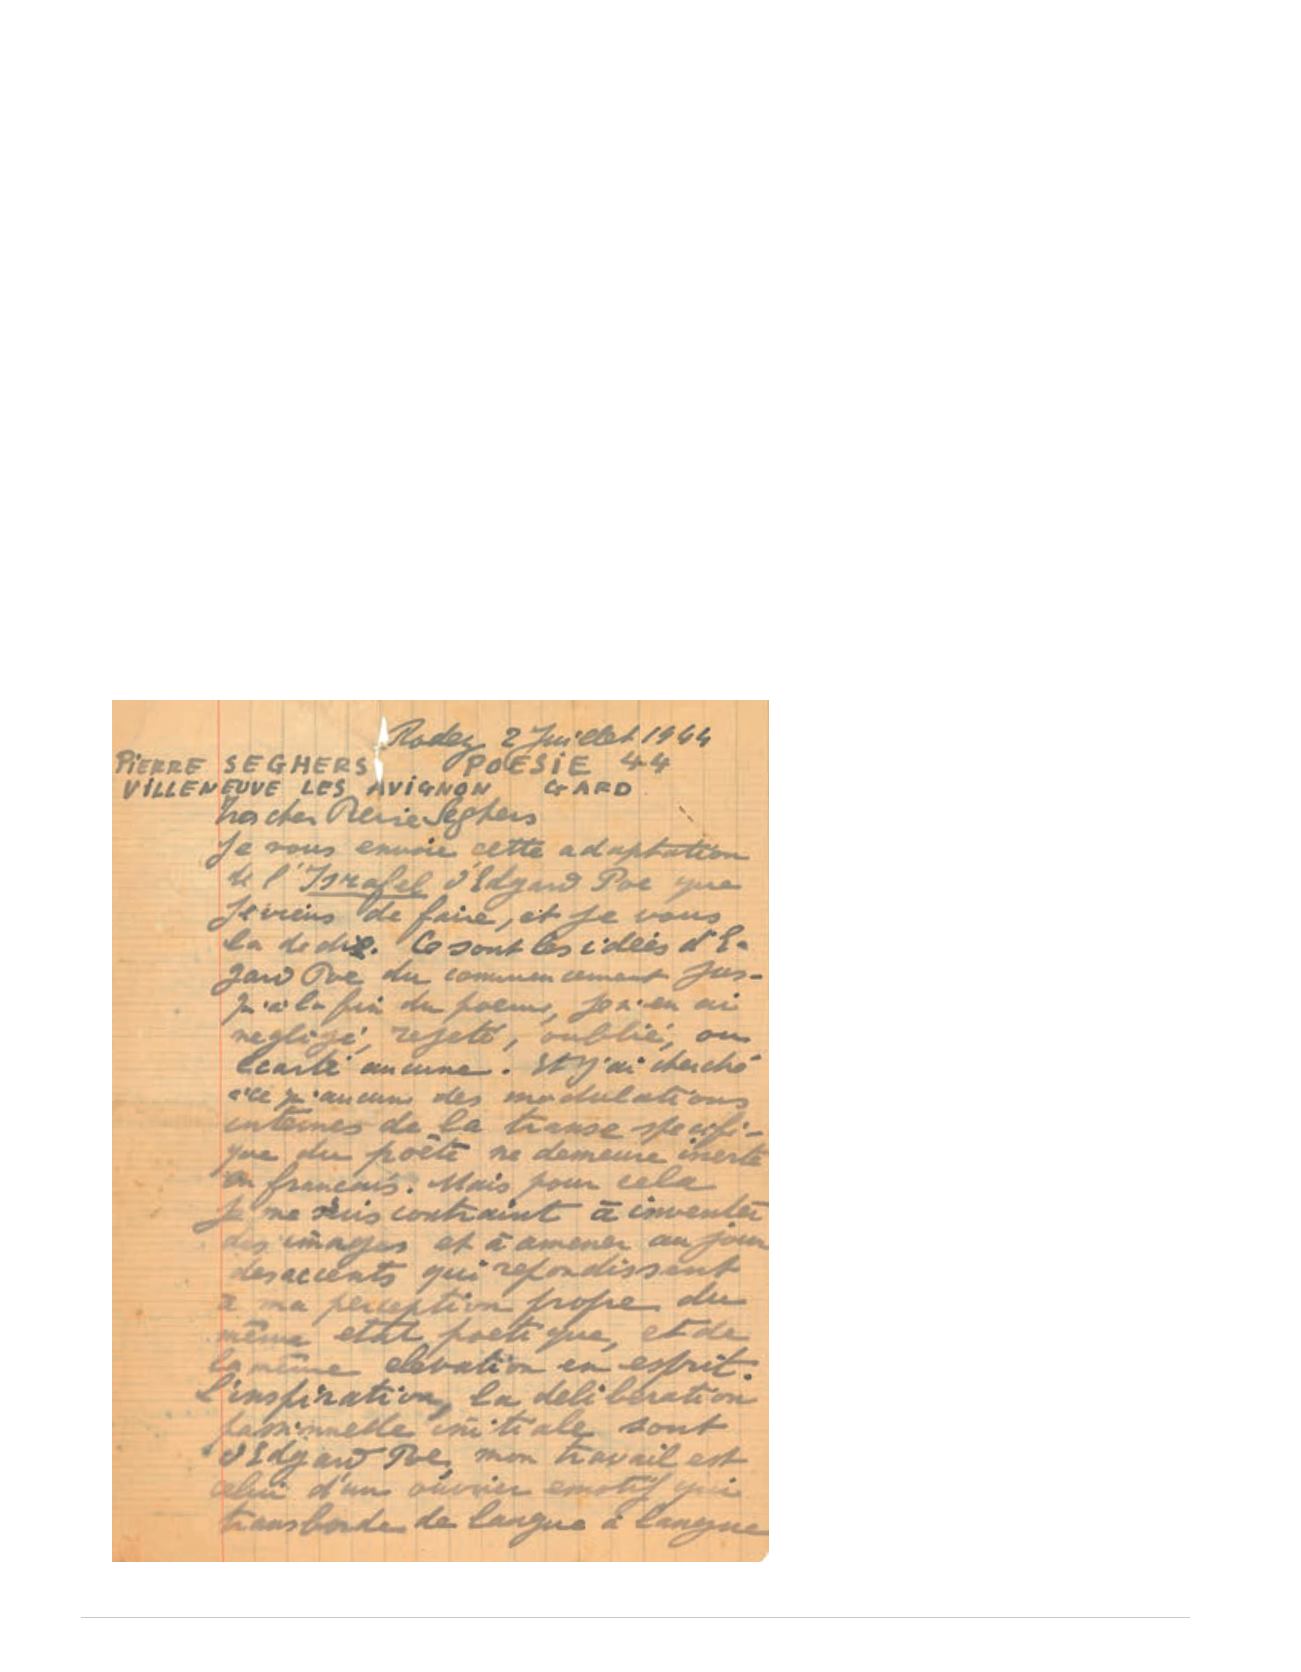 Rodez 2 Juillet 1944
PIERRE SEGHERS POESIE 44
VILLENEUVE LES AVIGNON GARD
Très cher Pierre Seghers
Je vous envoie cette adaptation
de l'Israfel d'Edgard Poe que
je viens de faire, et je vous
la dedie. Ce sont les idées d'E-
gard Poe du commencement jus-
qu'à la fin du poeme, je n'en ai
negligé, rejeté, oublié, ou
écarté aucune. Et j'ai cherché
à ce qu'aucune des modulations
internes de la transe specifi-
que du poête ne demeure inerte
en francais. Mais pour cela
je me suis contraint à inventer
des images et à amener au jour
des accents qui repondissent
à ma perception propre du
même etat poetique, et de
la même elevation en esprit.
L'inspiration, la deliberation
passionnelle initiale sont
d'Edgard Poe, mon travail est
celui d'un ouvrier emotif qui
transborde de langue à langue